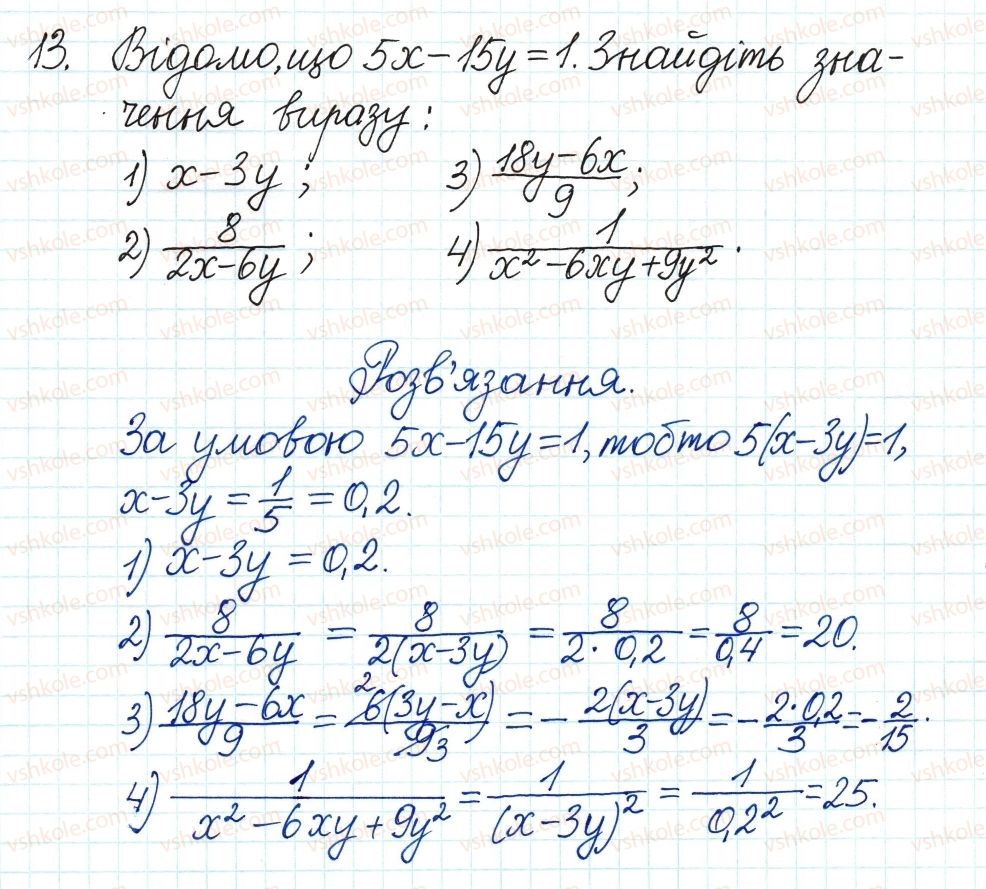 13. Відомо, що 5x – 15y = 1. Знайдіть зна-
чення виразу:
1) x – 3y ; 3) (18y – 6x)/9 ;
2) 8/(2x – 6y) ; 4) 1/(x² – 6xy + 9y²) .
Розв'язання.
За умовою 5x – 15y = 1, тобто 5(x – 3y) = 1,
x – 3y = 1/5 = 0,2.
1) x – 3y = 0,2.
2) 8/(2x – 6y) = 8/(2(x – 3y)) = 8/(2 · 0,2) = 8/0,4 = 20.
3) (18y – 6x)/9 = ²6(3y – x)/9₃ = – 2(x – 3y)/3 = – (2 · 0,2)/3 = – 2/15.
4) 1/(x² – 6xy + 9y²) = 1/(x – 3y)² = 1/0,2² = 25.